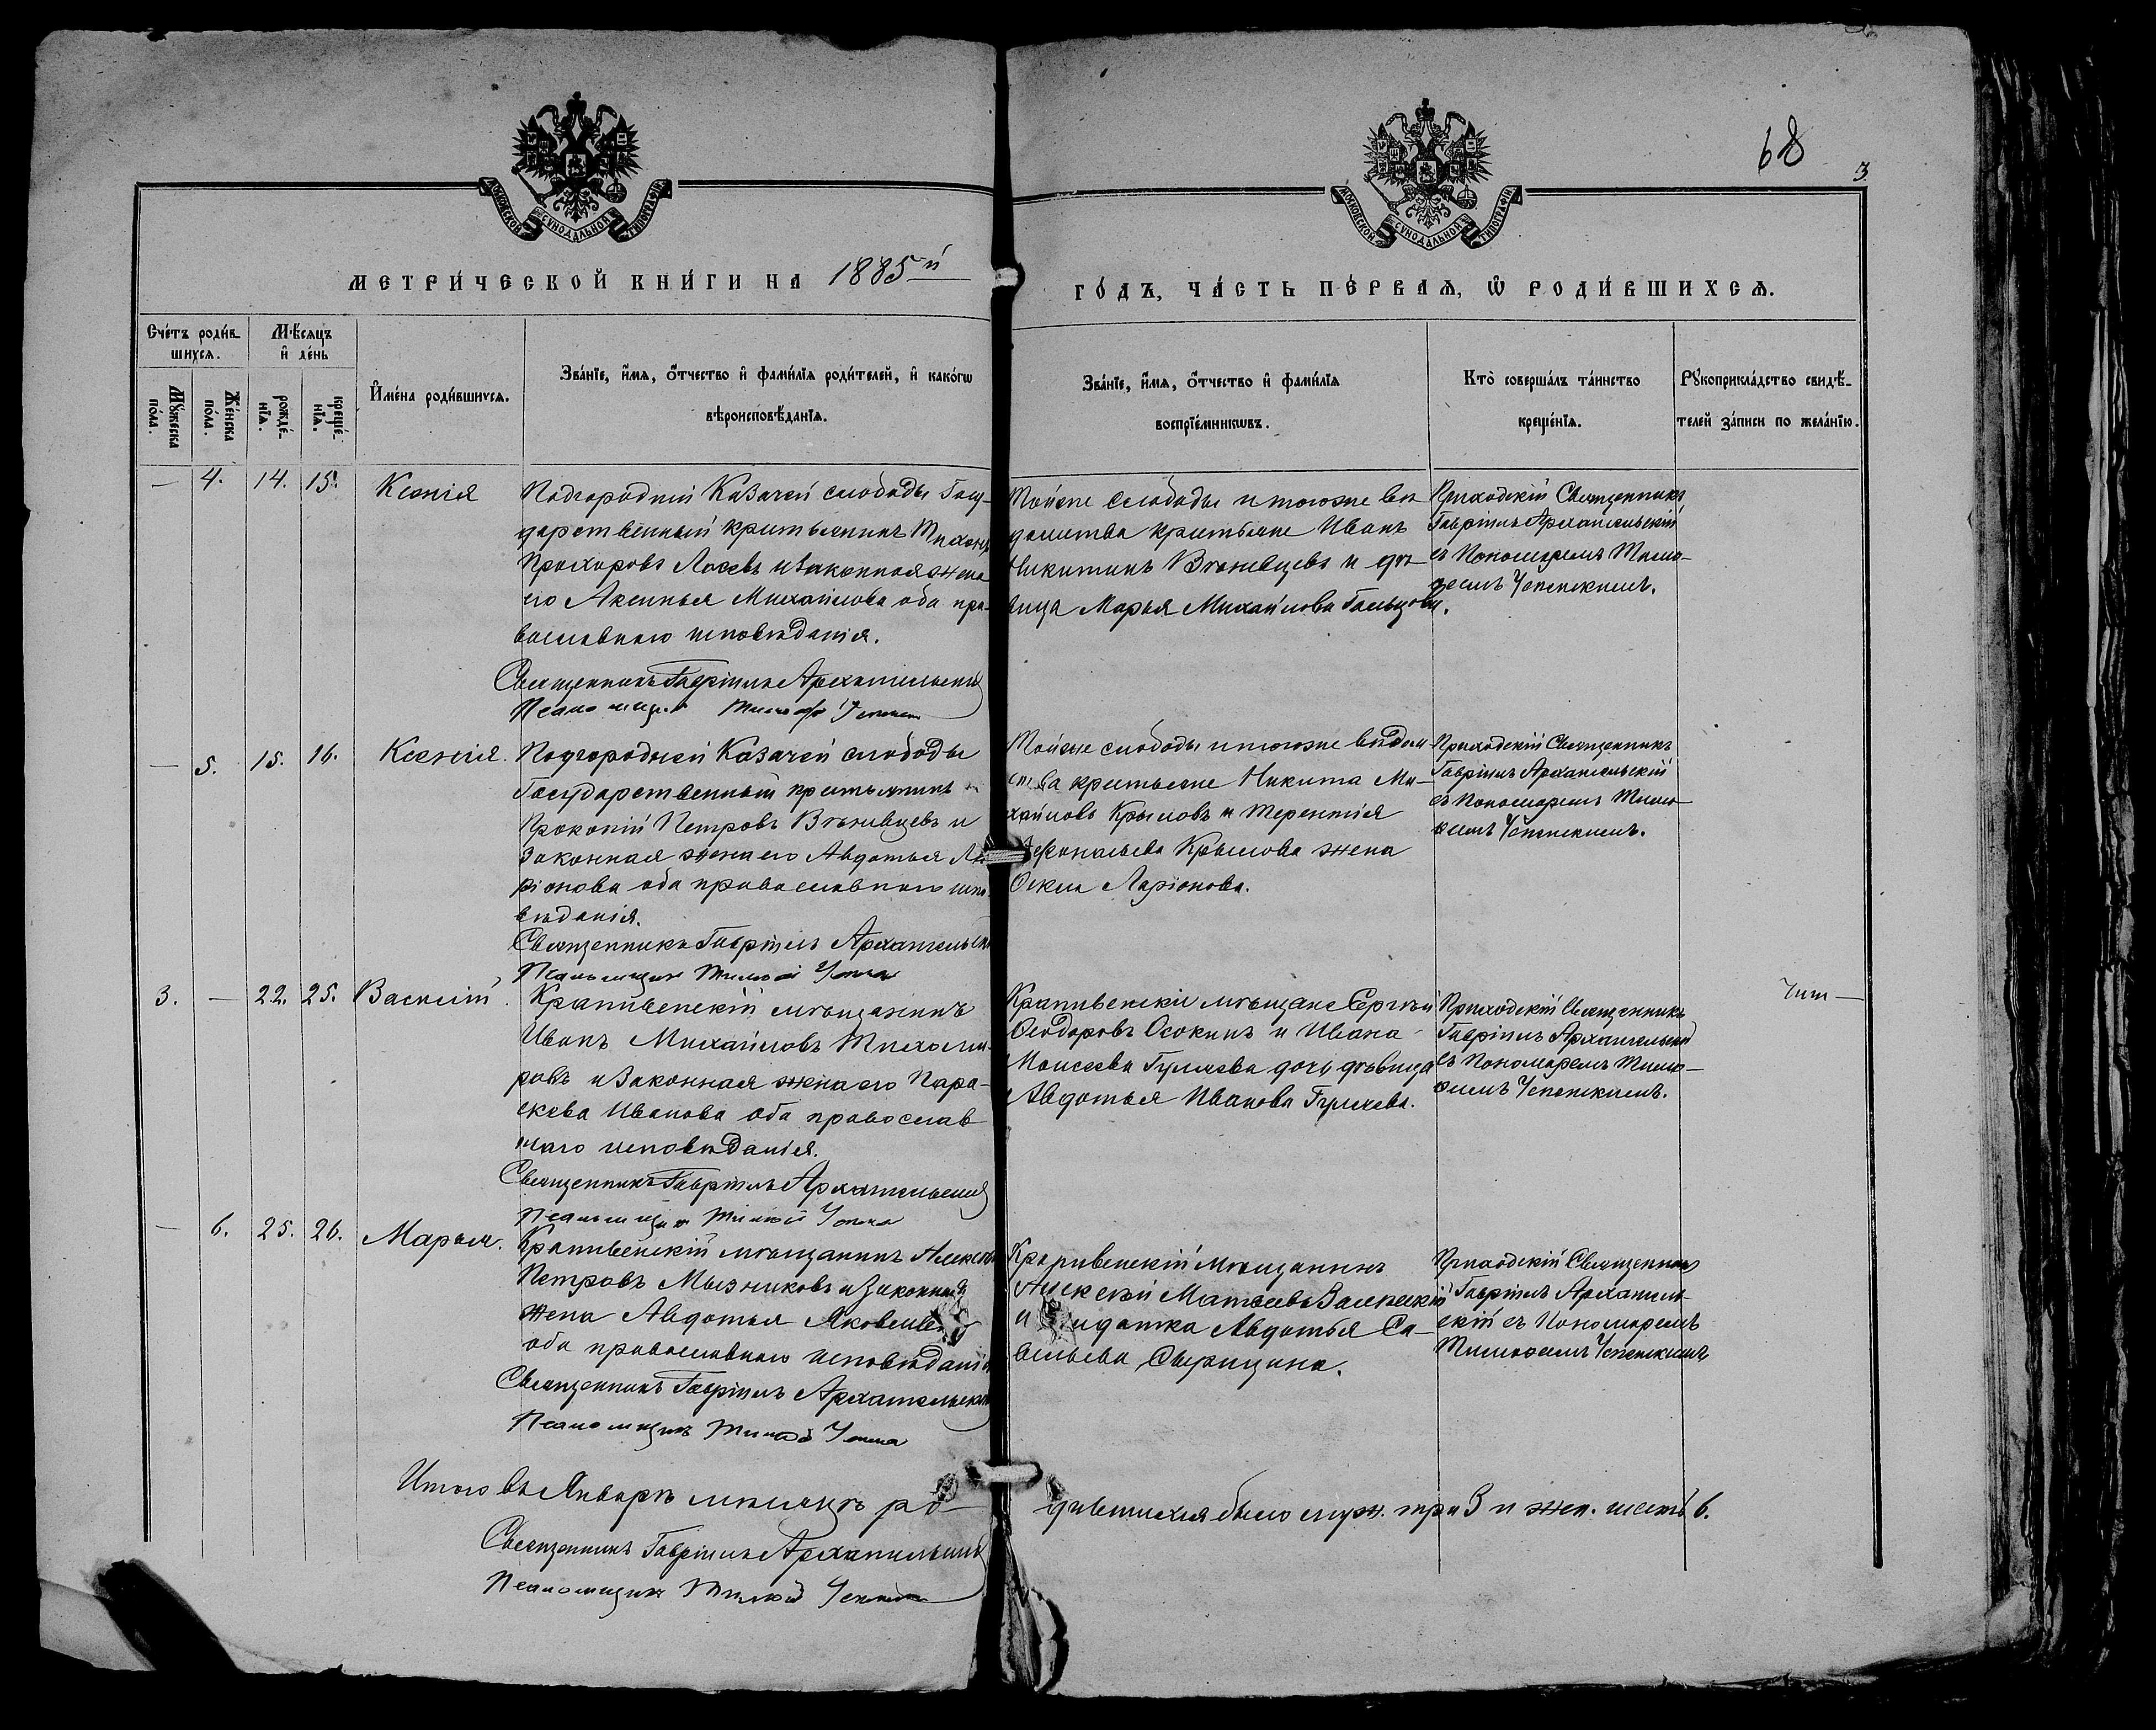 68
3
МОСКОВСКОЙ СѴНОДАЛЬНОЙ ТИПОГРАФІИ
МОСКОВСКОЙ СѴНОДАЛЬНОЙ ТИПОГРАФІИ
МЕТРИ́ЧЕСКОЙ КНИ́ГИ НА 1885й
ГО́ДЪ, ЧА́СТЬ ПЕ́РВАѦ, Ѡ РОДИ́ВШИХСѦ.
Сче́тъ роди́в-
шихсѧ.
Мꙋ́жеска по́ла.
Же́нска по́ла.
Мѣ́сѧцъ
и҆ де́нь
рожде́-
нїѧ.
креще́-
нїѧ.
И҆мена̀ роди́вшихсѧ.
Зва́нїе, и҆́мѧ, ѻ҆́тчество и҆ фами́лїѧ роди́телей, и҆ како́гѡ
вѣроисповѣ́данїѧ.
Зва́нїе, и҆́мѧ, ѻ҆́тчество и҆ фами́лїѧ
воспрїе́мникѡвъ.
Кто̀ соверша́лъ та́инство
креще́нїѧ.
Рꙋкоприкла́дство свидѣ́-
телей за́писи по жела́нїю.
— 4. 14. 15. Ксенія
Подгородней Казачей слободы Госу-
дарственный крестьянинъ Тихонъ
Прохоровъ Лосевъ и законная жена
его Аксинья Михайлова оба пра-
вославнаго исповѣданія.
Священникъ Гавріилъ Архангельскій
Псаломщикъ
Тойже слободы и тогоже вѣ-
домства крестьяне Иванъ
Никитинъ Вѣневцевъ и дѣ-
вица Марья Михайлова Гольцова.
Приходскій Священникъ
Гавріилъ Архангельскій
съ Пономаремъ Тимо-
ѳеемъ Успенскимъ.
— 5. 15. 16. Ксенія.
Подгородней Казачей слободы
Государственный крестьянинъ
Прокопій Петровъ Вѣневцевъ и
Законная жена его Авдотья Ла-
ріонова оба православнаго испо-
вѣданія.
Священникъ Гавріилъ Архангельскій
Псаломщикъ
Тойже слободы и тогоже вѣдом-
ства крестьяне Никита Ми-
хайловъ Крыловъ и Терентія
Аѳонасьева Крылова жена
Ѳекла Ларіонова.
Приходскій Священникъ
Гавріилъ Архангельскій
съ Пономаремъ Тимо-
ѳеемъ Успенскимъ.
3. — 22. 25. Василій.
Крапивенскій мѣщанинъ
Иванъ Михайловъ Тихоми-
ровъ и Законная жена его Пара-
скева Иванова оба православ-
наго исповѣданія.
Священникъ Гавріилъ Архангельскій
Псаломщикъ
Крапивенскіе мѣщане Сергѣй
Ѳеодоровъ Осокинъ и Ивана
Моисеева Гуляева дочь дѣвица
Авдотья Иванова Гуляева.
Приходскій Священникъ
Гавріилъ Архангельскій
съ Пономаремъ Тимо-
ѳеемъ Успенскимъ.
— 6. 25. 26. Марья.
Крапивенскій мѣщанинъ Алексѣй
Петровъ Мызниковъ и Законная
жена Авдотья Яковлева
оба православнаго исповѣданія
Священникъ Гавріилъ Архангельскій
Псаломщикъ
Крапивенскій мѣщанинъ
Алексѣй Матвеевъ
и Авдотья Са-
вельева
Приходскій Священникъ
Гавріилъ Архангель-
скій съ Пономаремъ
Тимоѳеемъ Успенскимъ
Итого въ Январѣ мѣсяцѣ ро-
дившихся было муж. три 3 и жен. шесть 6.
Священникъ Гавріилъ Архангельскій
Псаломщикъ